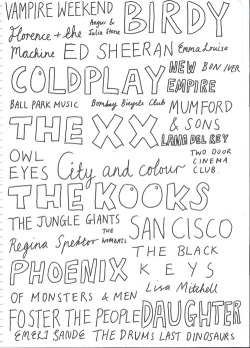 VAMPIRE WEEKEND
Angus &
Julia Stone
BIRDY
Florence + the
Machine
ED SHEERAN
Emma Louise
COLDPLAY
NEW
EMPIRE
BON IVER
BALL PARK MUSIC
Bombay Bicycle Club
MUMFORD
& SONS
THE XX
LANA DEL REY
OWL
EYES
City and colour
TWO DOOR
CINEMA
CLUB.
THE KOOKS
THE JUNGLE GIANTS
THE
WOMBATS
SAN CISCO
Regina Spektor
THE BLACK
KEYS
PHOENIX
OF MONSTERS & MEN
Lisa Mitchell
FOSTER THE PEOPLE
DAUGHTER
EMELI SANDE
THE DRUMS
LAST DINOSAURS